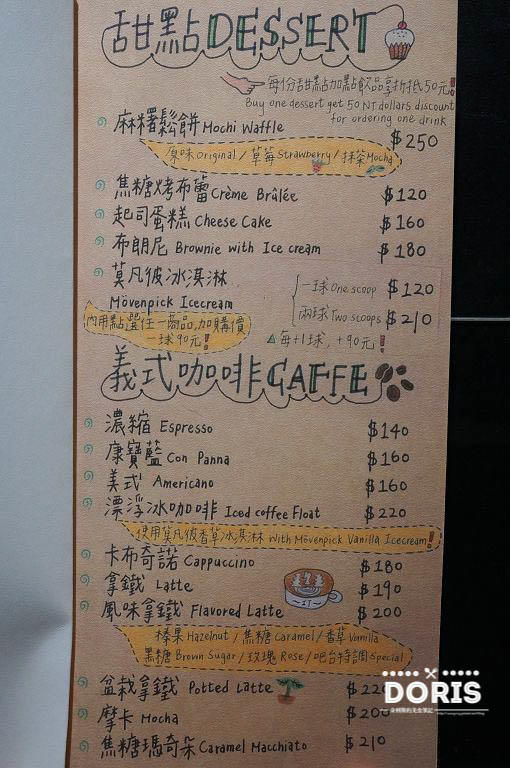 甜點DESSERT
每份甜點加點飲品享折抵50元!
Buy one dessert get 50 NT dollars discount
for ordering one drink
麻糬鬆餅 Mochi Waffle $250
原味 Original / 草莓 Strawberry / 抹茶 Mocha
焦糖烤布蕾 Crème Brûlée $120
起司蛋糕 Cheese Cake $160
布朗尼 Brownie with Ice cream $180
莫凡彼冰淇淋
Mövenpick Icecream
一球 One scoop $120
兩球 Two scoops $210
內用點選任一商品,加購價
一球90元!
每+1球,+90元!
義式咖啡 CAFFE
濃縮 Espresso $140
康寶藍 Con Panna $160
美式 Americano $160
漂浮冰咖啡 Iced coffee Float $220
使用莫凡彼香草冰淇淋 With Mövenpick Vanilla Icecream!
卡布奇諾 Cappuccino $180
拿鐵 Latte $190
風味拿鐵 Flavored Latte $200
榛果 Hazelnut / 焦糖 Caramel / 香草 Vanilla
黑糖 Brown Sugar / 玫瑰 Rose / 吧台特調 Special
盆栽拿鐵 Potted Latte $220
摩卡 Mocha $200
焦糖瑪奇朵 Caramel Macchiato $210
DORIS